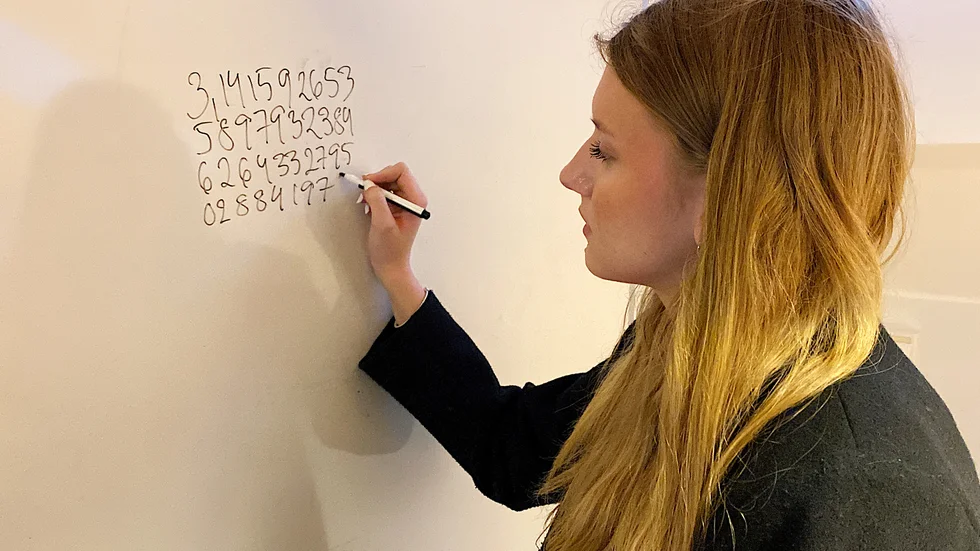 3,141592653
5897932384
6264332795
02884197